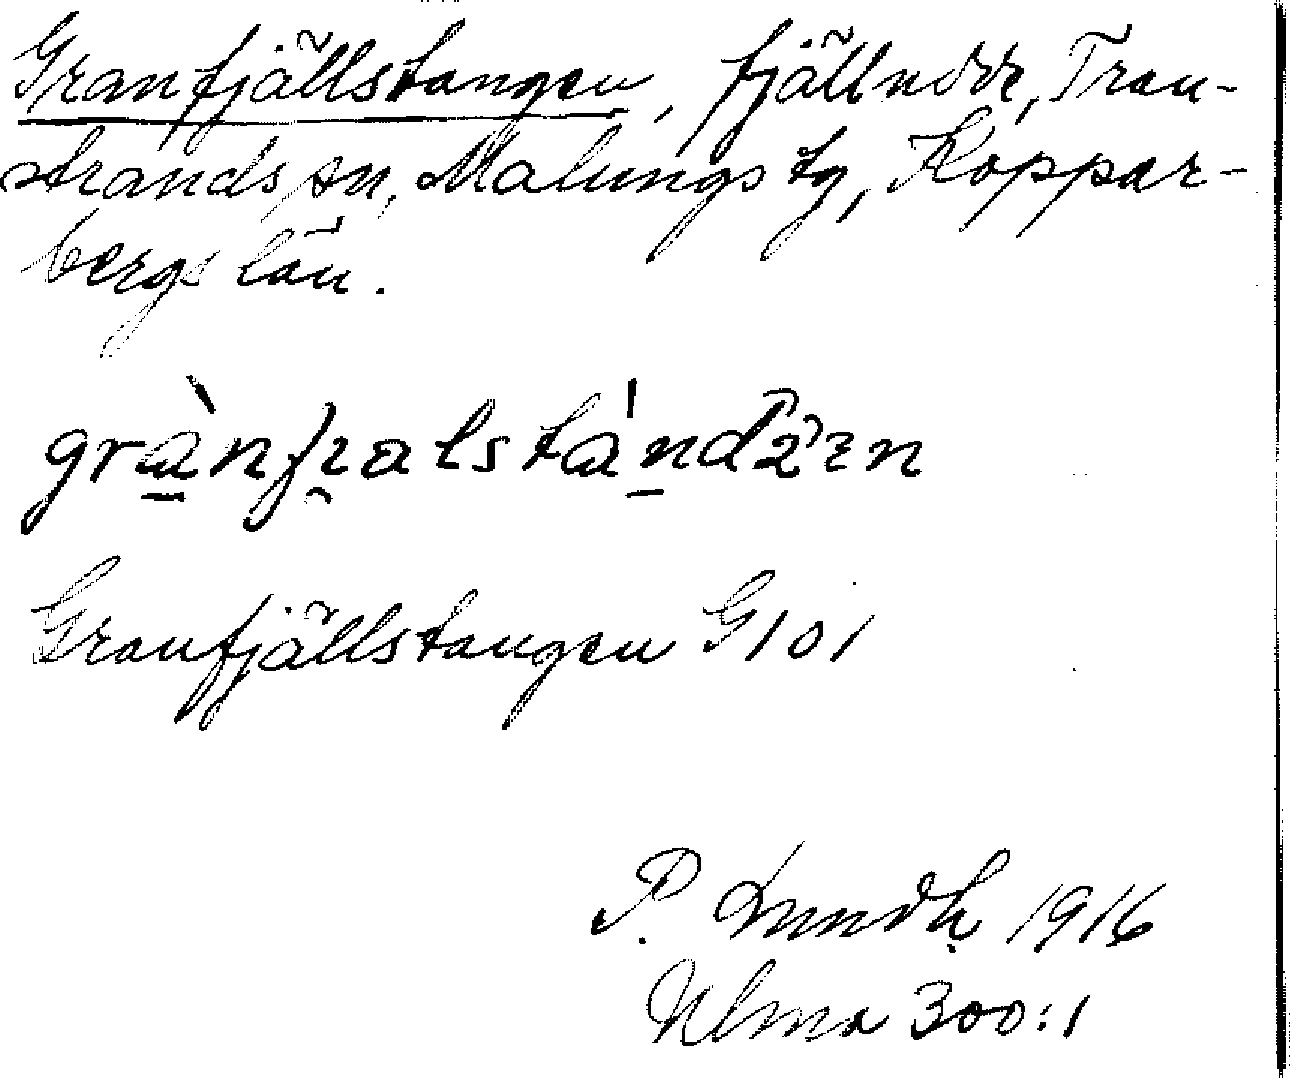 Granfjällstangen, fjälludde, Tran-
strands sn, Malungs tg, Koppar-
bergs län.
Granfjällstangen G101
P. Lundh. 1916
Ulma 300:1